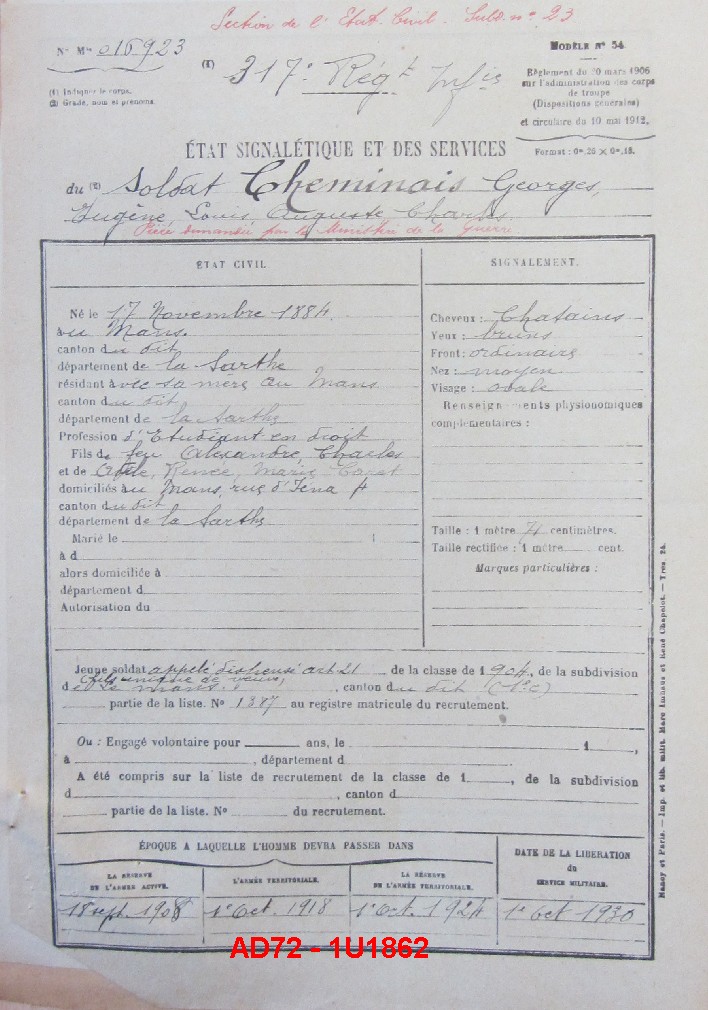 Section de l'Etat Civil. Subd. n° 23
N° Mle 016923
(1) 317e Régt Inf ie
MODÈLE N° 54.
(1) Indiquer le corps.
(2) Grade, nom et prénoms.
Règlement du 20 mars 1906
sur l'administration des corps
de troupe
(Dispositions générales)
et circulaire du 10 mai 1912.
Format : 0m,25 × 0m,18.
ÉTAT SIGNALÉTIQUE ET DES SERVICES
du (2) Soldat Cheminais Georges,
Eugène, Louis, Auguste Charles
Pièce demandée par le Ministre de la Guerre
ÉTAT CIVIL.
Né le 17 Novembre 1884
à u Mans.
canton du dit
département de la Sarthe
résidant avec sa mère au Mans
canton du dit
département de la Sarthe
Profession d'Etudiant en droit
Fils de feu Alexandre, Charles
et de Renée, Marie
domiciliés au Mans, rue d'Iéna 4
canton du dit
département de la Sarthe
Marié le 1
à d
alors domiciliée à
département d
Autorisation du
SIGNALEMENT.
Cheveux : Chatains
Yeux : bruns
Front : ordinaire
Nez : moyen
Visage : ovale
Renseignements physionomiques
complémentaires :
Taille : 1 mètre 74 centimètres.
Taille rectifiée : 1 mètre cent.
Marques particulières :
Jeune soldat appelé dispensé art 21 de la classe de 1904, de la subdivision
(fils unique de veuve)
de Le Mans, canton du dit
partie de la liste. N° 1387 au registre matricule du recrutement.
Ou : Engagé volontaire pour ans, le 1 ,
à , département d
A été compris sur la liste de recrutement de la classe de 1 , de la subdivision
d , canton d
partie de la liste. N° du recrutement.
ÉPOQUE A LAQUELLE L'HOMME DEVRA PASSER DANS
DATE DE LA LIBERATION
du
SERVICE MILITAIRE.
LA RÉSERVE
DE L'ARMÉE ACTIVE.
L'ARMÉE TERRITORIALE.
LA RÉSERVE
DE L'ARMÉE TERRITORIALE.
18 sept. 1908
1e Oct. 1918
1e Oct. 1924
1e Oct 1930
Nancy et Paris. — Imp. et lib. milit. Marc Imhaus et René Chapelot. — Trés. 24.
AD72 - 1U1862